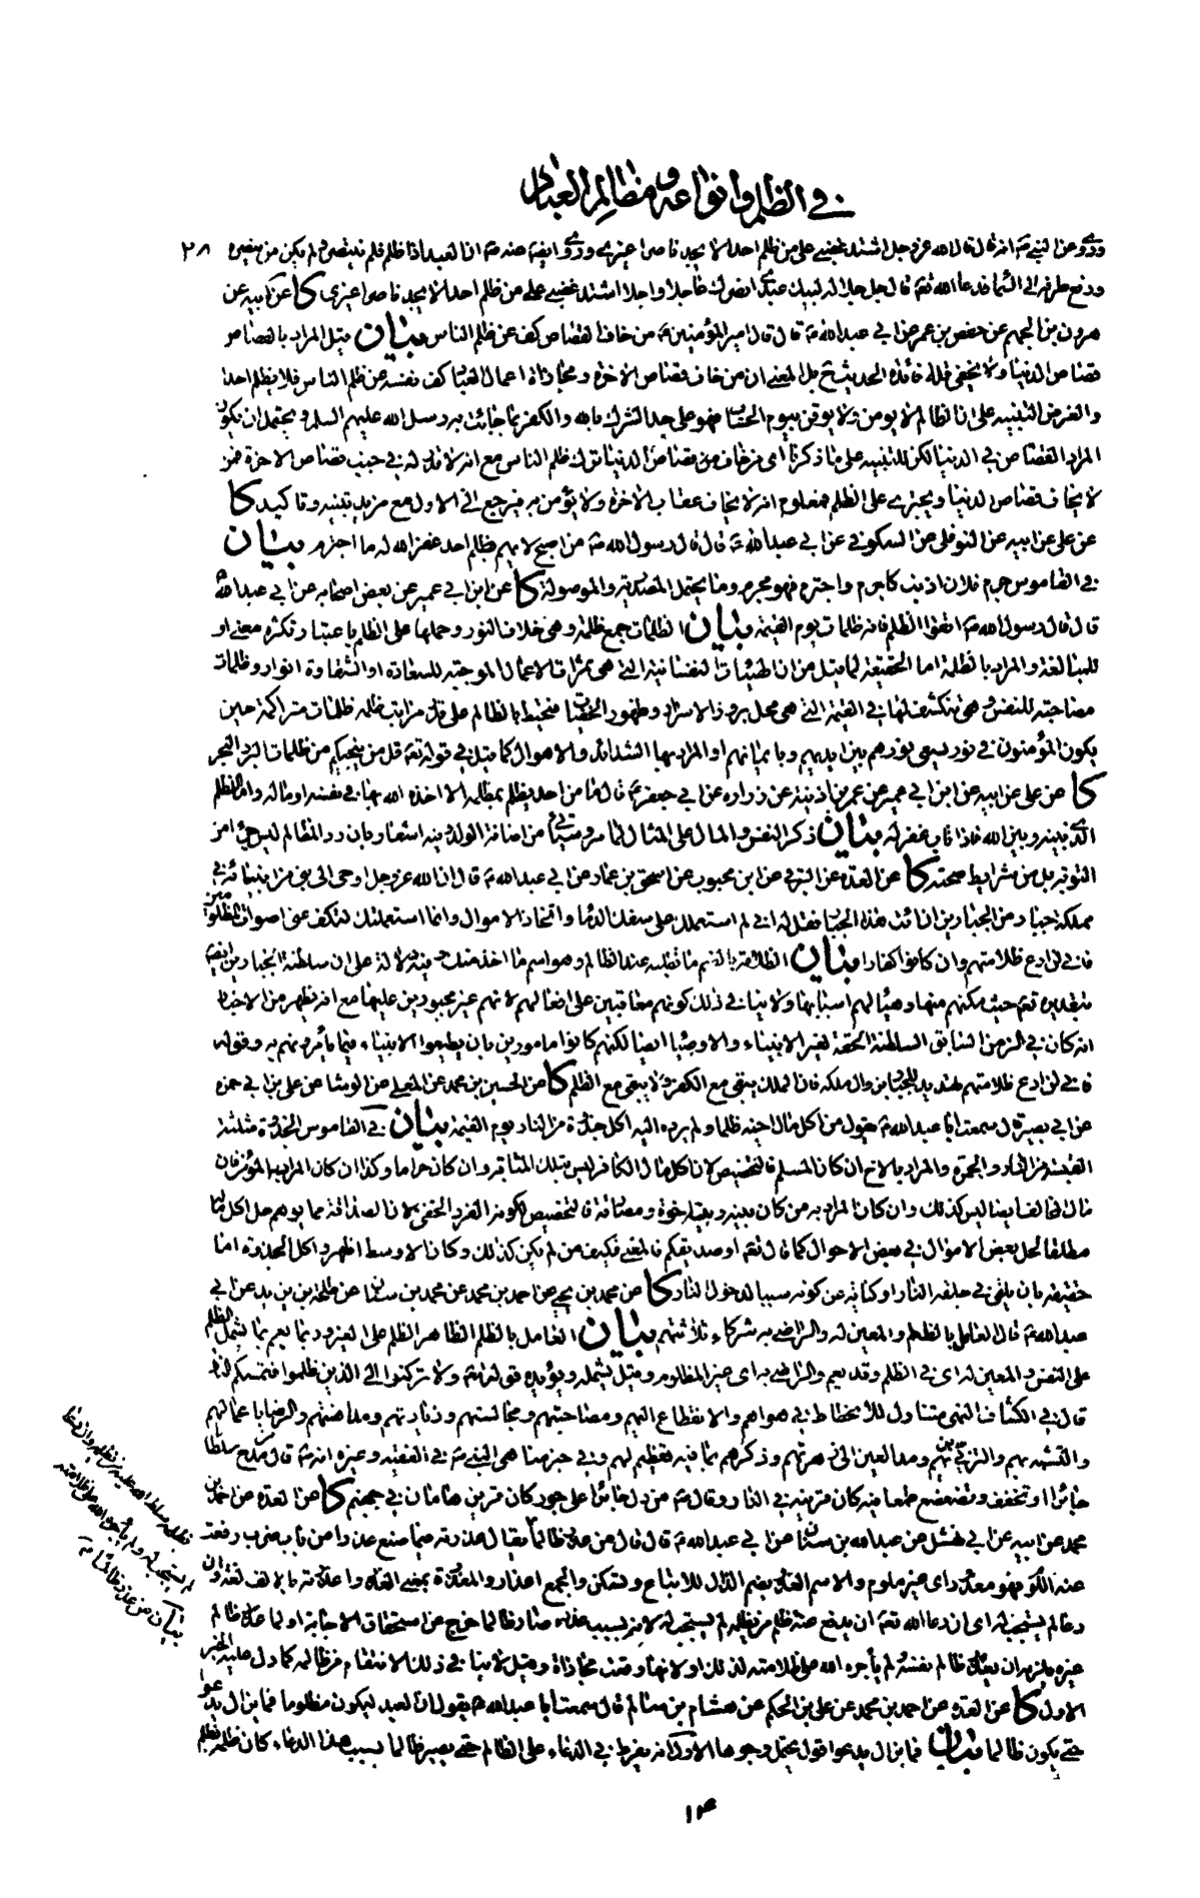 في الظلم وانواعه ومظالم العباد
وروى عن النبي ص انه قال قال الله عز وجل اشتد غضبي على من ظلم احدا لا يجد ناصرا غيري وروى ايضا عنه ص ان العبد اذا ظلم فلم ينتصر ولم يكن من ينصره ٢٨١
ورفع طرفه الى السماء فدعا الله تعالى قال جل جلاله لبيك عبدي انصرك عاجلا واجلا اشتد غضبي على من ظلم احدا لا يجد ناصرا غيري كا عن ابيه عن
هرون بن الجهم عن حفص بن عمر عن ابي عبد الله ع قال قال امير المؤمنين ع من خاف القصاص كف عن ظلم الناس بيان قيل المراد بالقصاص
قصاص الدنيا ولا يخفى قلة فائدة الحديث ح بل المعنى ان من خاف قصاص الاخرة ومجازاة اعمال العباد كف نفسه عن ظلم الناس فلا يظلم احدا
والغرض التنبيه على ان الظالم لا يؤمن ولا يوقن بيوم الحساب فهو على حد الشرك بالله والكفر بما جائت به رسل الله عليهم السلم ويحتمل ان يكون
المراد القصاص في الدنيا لكن للتنبيه على ما ذكرنا اي من خاف من قصاص الدنيا ترك ظلم الناس مع انه لا قدر له في جنب قصاص الاخرة فمن
لا يخاف قصاص الدنيا ويجترى على الظلم فمعلوم انه لا يخاف عقاب الاخرة ولا يؤمن به فيرجع الى الاول مع مزيد تنبيه وتاكيد كا
عن علي عن ابيه عن النوفلي عن السكوني عن ابي عبد الله ع قال قال رسول الله ص من اصبح لا يهم بظلم احد غفر الله له ما اجترم بيان
في القاموس جرم فلان اذنب كاجرم واجترم فهو مجرم وما يحتمل المصدرية والموصولة كا عن ابن ابي عمير عن بعض اصحابه عن ابي عبد الله ع
قال قال رسول الله ص اتقوا الظلم فانه ظلمات يوم القيمة بيان الظلمات جمع ظلمة وهي خلاف النور وحملها على الظلم باعتبار تكثره معنى او
للمبالغة والمراد بالظلمة اما الحقيقة لما قيل من ان الهيئات النفسانية التي هي ثمرات الاعمال الموجبة للسعادة او الشقاوة انوار وظلمات
مصاحبة للنفس وهي تنكشف لها في القيمة التي هي محل بروز الاسرار وظهور الخفيات فتحيط بالظالم على قدر مراتب ظلمه ظلمات متراكمة حين
يكون المؤمنون في نور يسعى نورهم بين ايديهم وبايمانهم او المراد بها الشدائد والاهوال كما قيل في قوله تعالى قل من ينجيكم من ظلمات البر والبحر
كا عن علي عن ابيه عن ابن ابي عمير عن عمر بن اذينة عن زرارة عن ابي جعفر ع قال ما من احد يظلم بمظلمة الا اخذه الله بها في نفسه او ماله واما الظلم
الذي بينه وبين الله فاذا تاب غفر له بيان ذكر النفس والمال على المثال لما مر وسيأتي من اضافة الولد وفيه اشعار بان رد المظالم ليس جزءا من
التوبة بل من شرايط صحته كا عن العدة عن البرقي عن ابن محبوب عن اسحق بن عمار عن ابي عبد الله ع قال ان الله عز وجل اوحى الى نبي من انبيائه في
مملكة جبار من الجبارين ان ائت هذا الجبار فقل له اني لم استعملك على سفك الدماء واتخاذ الاموال وانما استعملتك لتكف عني اصوات المظلومين
فاني لن ادع ظلامتهم وان كانوا كفارا بيان الظلامة بالضم ما تطلبه عند الظالم وهو اسم ما اخذ منك وفيه دلالة على ان سلطنة الجبارين ايضا
بتقديره تعالى حيث مكنهم منها وهيأ لهم اسبابها ولا ينافي ذلك كونهم معاقبين على افعالهم لانهم غير مجبورين عليها مع انه يظهر من الاخبار
انه كان في الزمن السابق السلطنة الحقة لغير الانبياء والاوصياء ايضا لكنهم كانوا مامورين بان يطيعوا الانبياء فيما يأمرونهم به وقوله
فاني لن ادع ظلامتهم تهديد للجبار بزوال ملكه فان الملك يبقى مع الكفر ولا يبقى مع الظلم كا عن الحسين بن محمد عن المعلى عن الوشا عن علي بن ابي حمزة
عن ابي بصير قال سمعت ابا عبد الله ع يقول من اكل مال اخيه ظلما ولم يرده اليه اكل جذوة من النار يوم القيمة بيان في القاموس الجذوة مثلثة
القبسة من النار والجمرة والمراد بالاخ ان كان المسلم فالتخصيص لان اكل مال الكافر ليس بتلك المثابة وان كان حراما وكذا ان كان المراد به المؤمن فان
مال المخالف ايضا ليس كذلك وان كان المراد به من كان بينه وبينه اخوة ومصادقة فالتخصيص لكونه الفرد الخفي لان الصداقة مما يوهم حل اكل ماله
مطلقا لحل بعض الاموال في بعض الاحوال كما قال تعالى او صديقكم فالمعنى فكيف من لم يكن كذلك وكان الاوسط اظهر واكل الجذوة اما
حقيقة بان يلقى في حلقه النار او كناية عن كونه سببا لدخول النار كا عن محمد بن يحيى عن احمد بن محمد عن محمد بن سنان عن طلحة بن زيد عن ابي
عبد الله ع قال العامل بالظلم والمعين له والراضي به شركاء ثلاثتهم بيان العامل بالظلم الظاهر الظلم على الغير وربما يعم بما يشمل الظلم
على النفس والمعين له اي في الظلم وقد يعم والراضي به اي غير المظلوم وقيل يشمله ويؤيده قوله تعالى ولا تركنوا الى الذين ظلموا فتمسكم النار
قال في الكشاف النهي متناول للانحطاط في هواهم والانقطاع اليهم ومصاحبتهم ومجالستهم وزيارتهم ومداهنتهم والرضا باعمالهم
والتشبه بهم والتزيي بزيهم ومد العين الى زهرتهم وذكرهم بما فيه تعظيم لهم وفي خبر مناهي النبي ص في الفقيه وغيره انه ص قال من مدح سلطانا
جائرا او تخفف وتضعضع طمعا فيه كان قرينه في النار وقال ص من دل جائرا على جور كان قرين هامان في جهنم كا عن العدة عن احمد بن
محمد عن ابيه عن ابي نهشل عن عبد الله بن سنان عن ابي عبد الله ع قال قال من عذر ظالما بظلمه سلط الله عليه من يظلمه وان دعا
لم يستجب له ولم يأجره الله على ظلامته
بيان من عذر ظالما يقال عذرته فيما صنع عذرا من باب ضرب رفعت
عنه اللوم فهو معذور اي غير ملوم والاسم العذر بضم الذال للاتباع وتسكن والجمع اعذار والمعذرة بمعنى العذر واعذرته بالالف لغة وان
دعا لم يستجب له اي ان دعا الله تعالى ان يدفع عنه ظلم من يظلمه لم يستجب له لانه بسبب عذره صار ظالما خرج عن استحقاق الاجابة او لما عذر ظالم
غيره يلزمه ان يعذر ظالم نفسه ولم يأجره الله على ظلامته لذلك او لانها وقعت مجازاة وقيل لا ينافي ذلك الانتقام من ظالمه كما دل عليه الخبر
الاول كا عن العدة عن احمد بن محمد عن علي بن الحكم عن هشام بن سالم قال سمعت ابا عبد الله ع يقول ان العبد ليكون مظلوما فما يزال يدعو
حتى يكون ظالما بيان فما يزال يدعو اقول يحتمل وجوها الاول انه يفرط في الدعاء على الظالم حتى يصير ظالما بسبب هذا الدعاء كان ظلمه بظلم
١٣